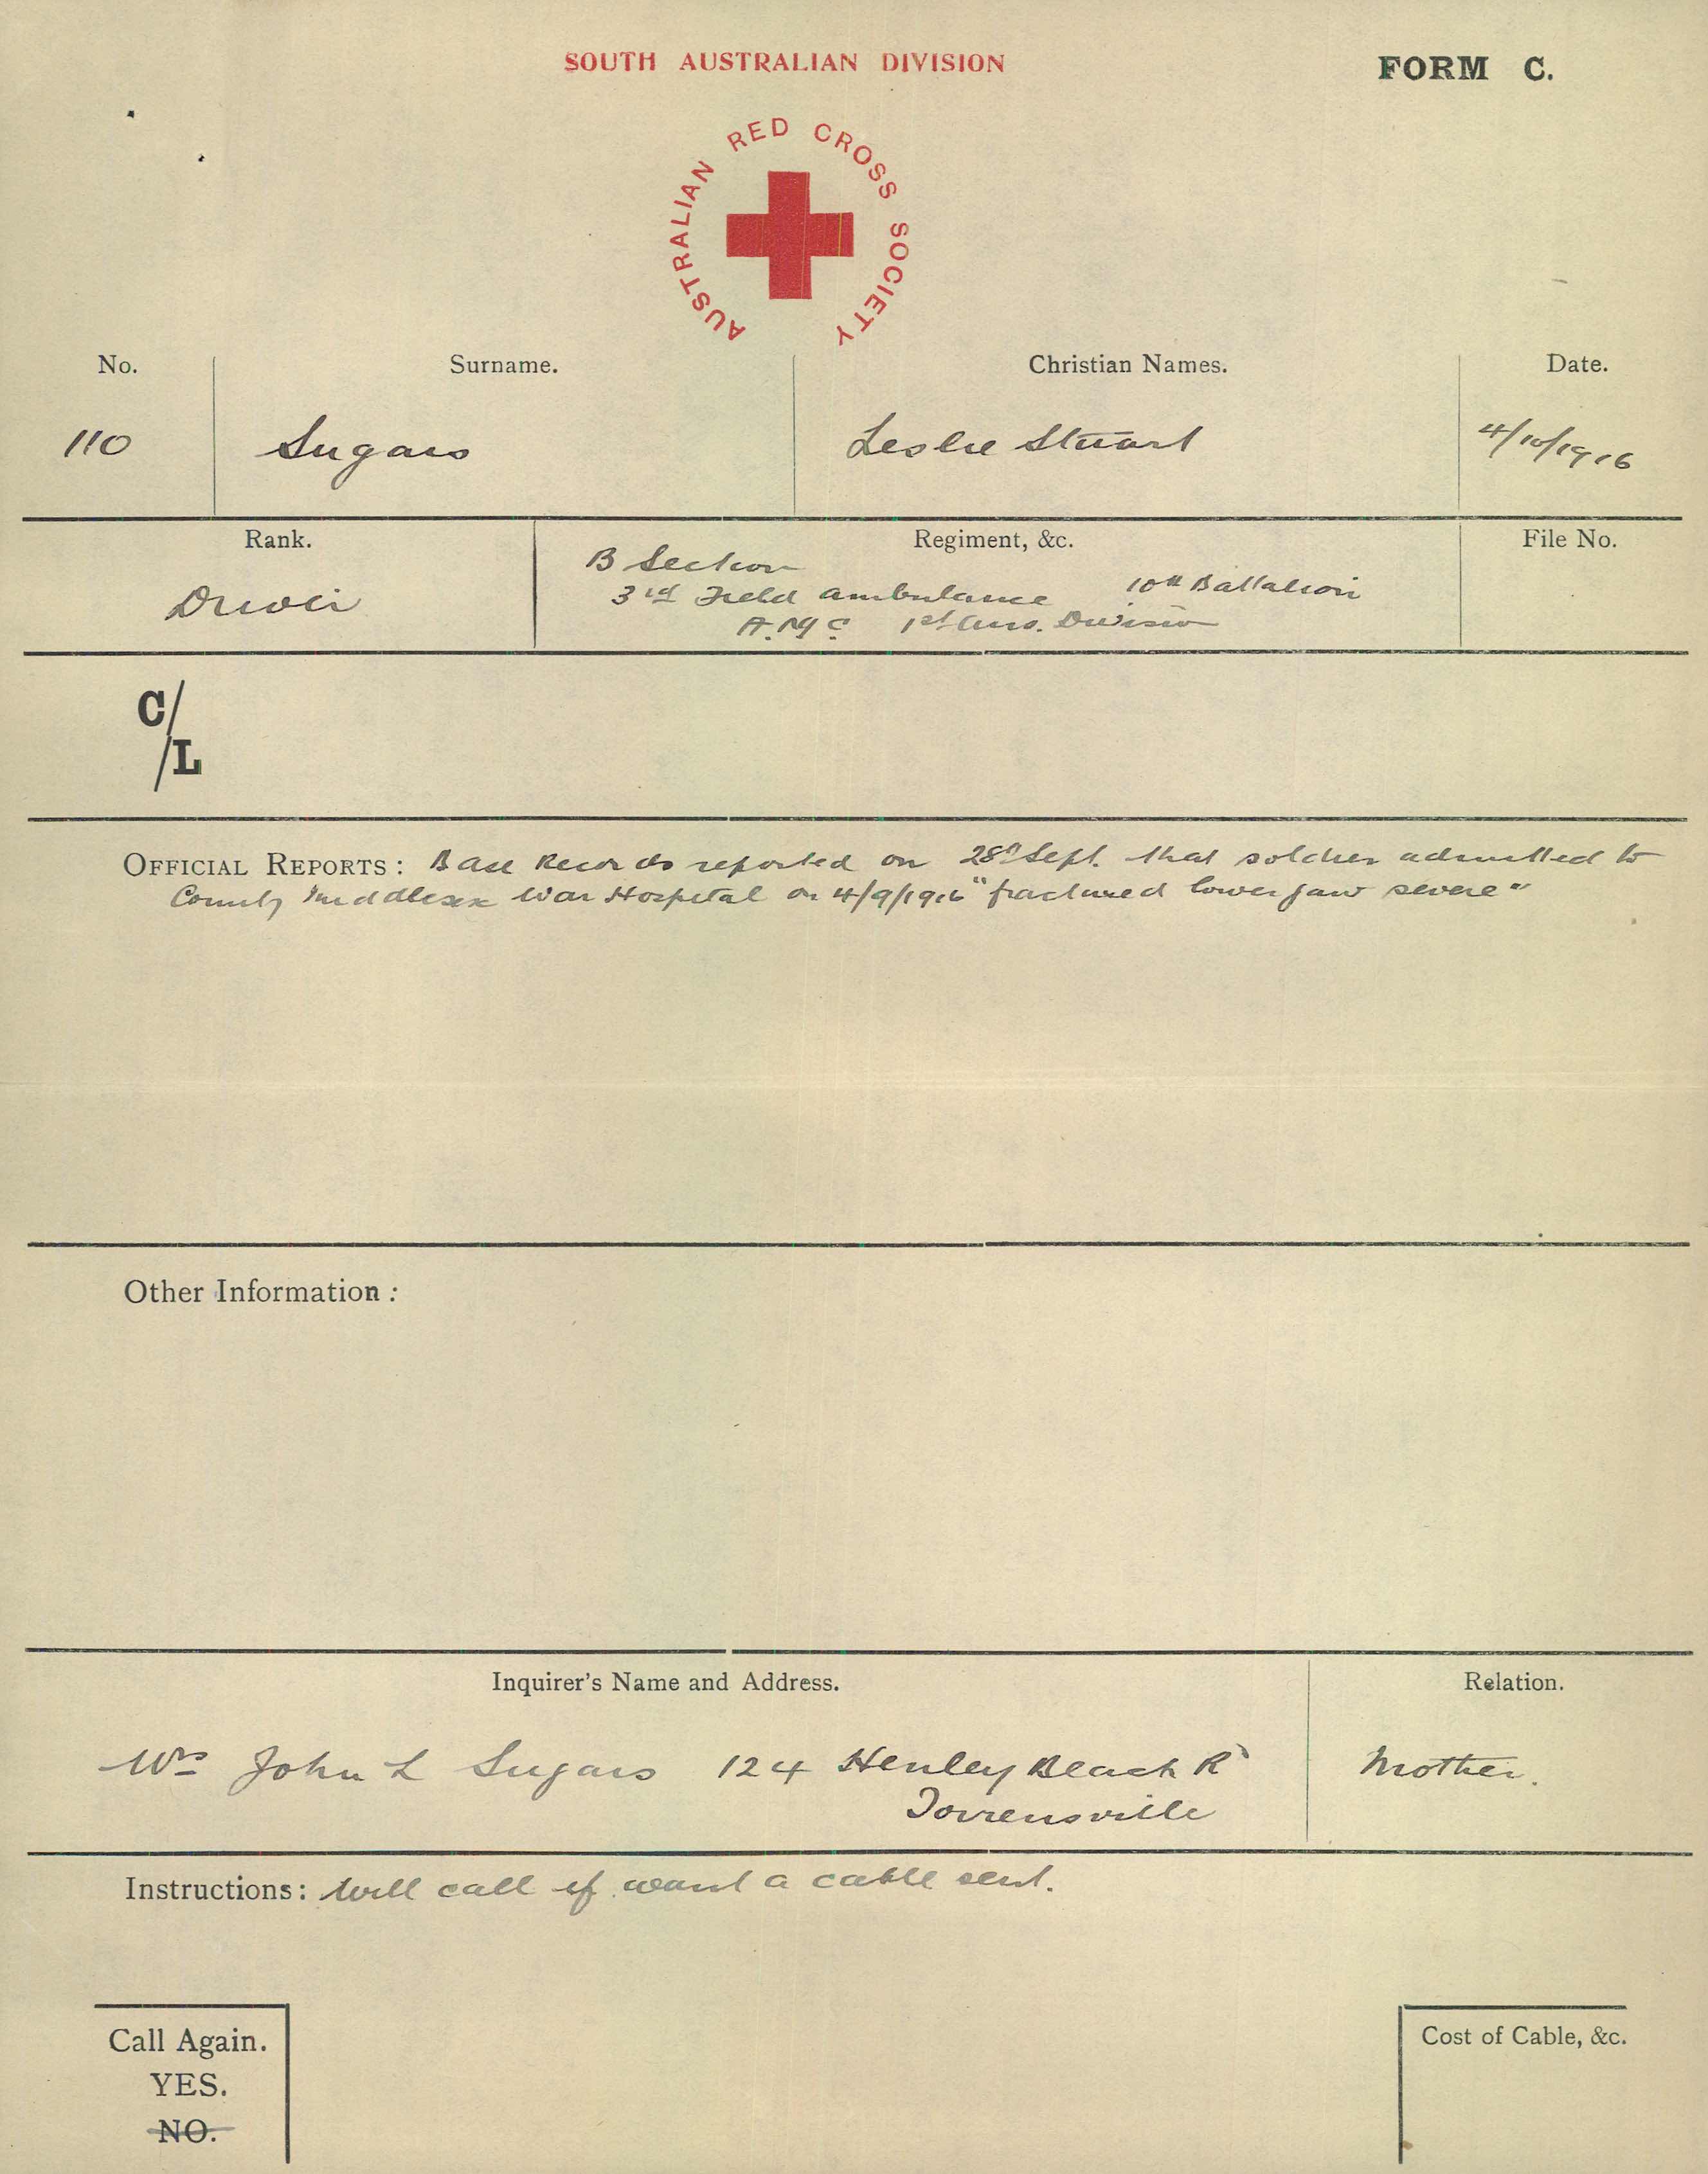 SOUTH AUSTRALIAN DIVISION
FORM C.
AUSTRALIAN RED CROSS SOCIETY
No. Surname. Christian Names. Date.
110 Sugars Leslie Stuart 4/10/1916
Rank. Regiment, &c. File No.
Driver
B Section
3rd Field ambulance 10th Battalion
A.M.C 1st Aus. Division
C/
/L
OFFICIAL REPORTS: Base Records reported on 28th Sept. that soldier admitted to
County Middlesex War Hospital on 4/9/1916 "fractured lower jaw severe"
Other Information:
Inquirer's Name and Address. Relation.
Mrs John L Sugars 124 Henley Beach Rd Mother.
Torrensville
Instructions: Will call if want a cable sent.
Call Again.
YES.
NO.
Cost of Cable, &c.